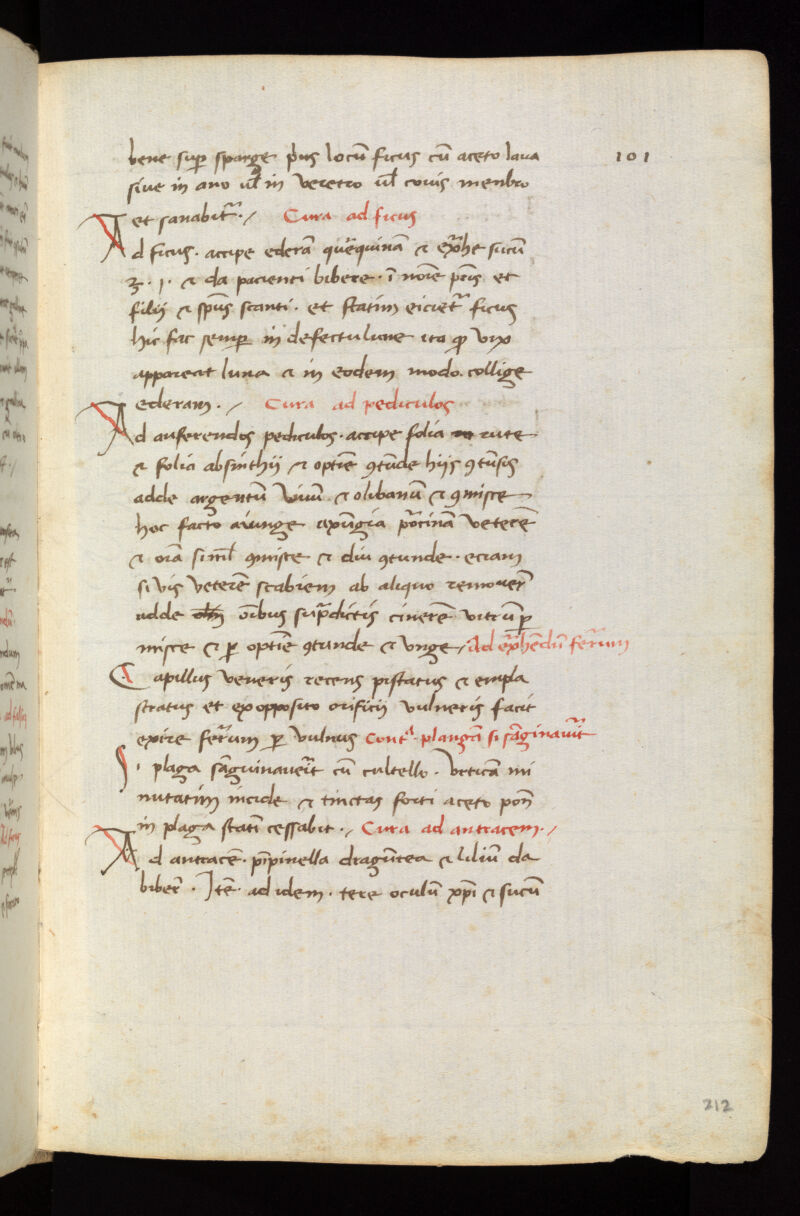 101
bene sup̄ sparge p̄us locū ficus cū aceto laua
siue in ano ul̄ in veretro ul̄ couis menbro
et sanabit᷑ ·/ Cura ad ficus
Ad ficus · accipe ederā quēquinā & ext᷑he sucū
ʒ · 1 · & da pacienti bibere · ī noīe pr̄is et
filij & spūs scanti · et statim eiciet᷑ ficus
hic fac semp̄ in defectu lune ita qp̄ vix
appareat luna & in eodem modo · collige
ederam · / Cura ad pediculos
Ad auferendos pediculos · accipe folia rute
& folia absinthij & optīe ꝯtūde hijs ꝯtūsis
adde argentū viuū & olibanū & ꝯmisce
hoc facto aiunge axūgia porcinā veterē
& oīa siml̄ ꝯmisce & diu ꝯtunde · eciam
si vis veterē scabiem ab aliquo remouer̄
adde oībus sup̄dictis cinerē vitrū p̄
misce & p̄ optīe ꝯtunde & vnge / Ad ext᷑hēdū ferrum
Capillus veneris recens pistatus & empla
stratus et ex opposito orificij vulneris facit
exire ferrum p̄ vulnus Cont᷑ plangā si sāginauīt
Si plaga sāguinauerīt cū cultello · vrticā mi
nutatim incide & tinctas forti aceto pon̄
in plaga statī cessabit ·/ Cura ad antracem ·/
Ad antracē · pīpinella dragūtea & liliū da
biber̄ · Itē · ad idem · tere oculū xp̄i & sucū
212